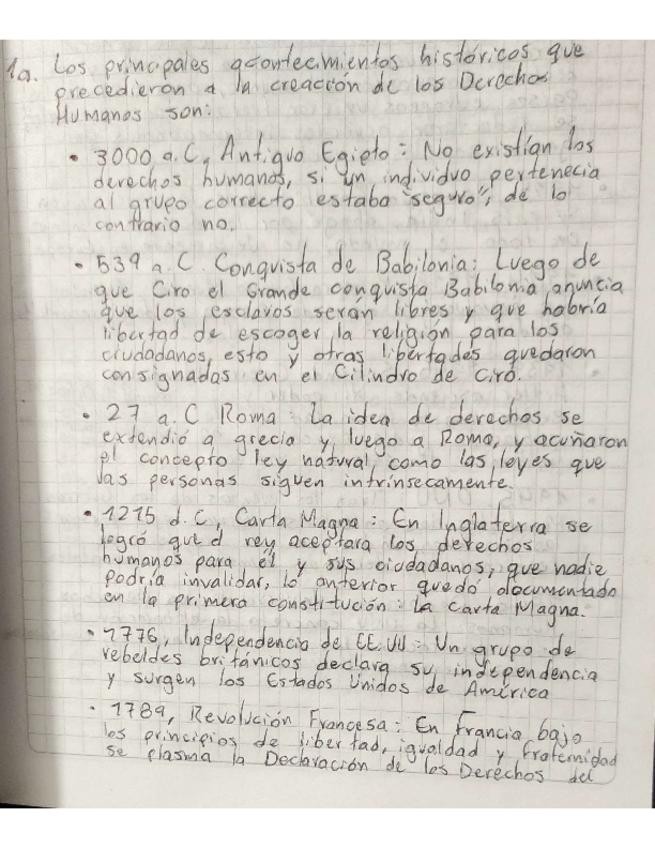 1a. Los principales acontecimientos históricos que
precedieron a la creación de los Derechos
Humanos son:
• 3000 a.C, Antiguo Egipto: No existían los
derechos humanos, si un individuo pertenecia
al grupo correcto estaba "seguro", de lo
contrario no.
• 539 a.C. Conquista de Babilonia: Luego de
que Ciro el Grande conquista Babilonia, anuncia
que los esclavos serán libres y que habría
libertad de escoger la religión para los
ciudadanos, esto y otras libertades quedaron
consignadas en el Cilindro de Ciro.
• 27 a.C Roma: La idea de derechos se
extendió a grecia y luego a Roma, y acuñaron
el concepto ley natural, como las leyes que
las personas siguen intrínsecamente.
• 1215 d.C, Carta Magna: En Inglaterra se
logró que el rey aceptara los derechos
humanos para él y sus ciudadanos, que nadie
podría invalidar, lo anterior quedó documentado
en la primera constitución: la Carta Magna.
• 1776, Independencia de EE.UU: Un grupo de
rebeldes británicos declara su independencia
y surgen los Estados Unidos de América
• 1789, Revolución Francesa: En Francia bajo
los principios de libertad, igualdad y fraternidad
se plasma la Declaración de los Derechos del